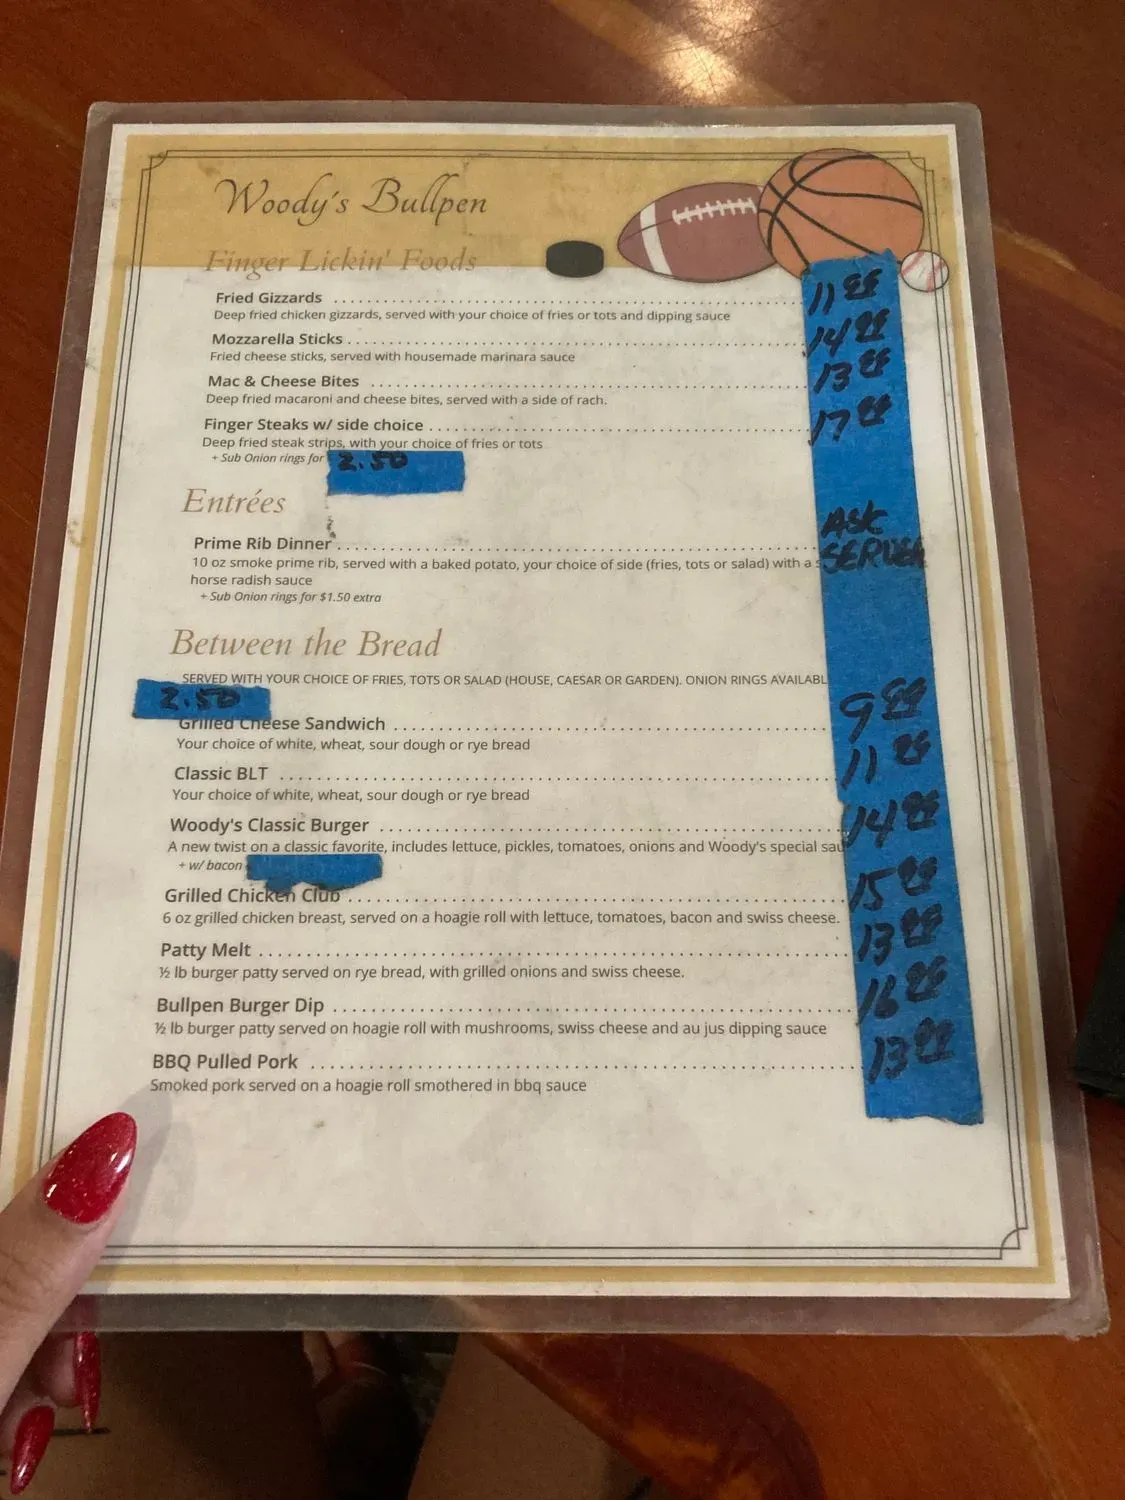 Woody's Bullpen
Finger Lickin' Foods
Fried Gizzards ........ 11
Deep fried chicken gizzards, served with your choice of fries or tots and dipping sauce
Mozzarella Sticks ........ 14
Fried cheese sticks, served with housemade marinara sauce
Mac & Cheese Bites ........ 13
Deep fried macaroni and cheese bites, served with a side of rach.
Finger Steaks w/ side choice ........ 17
Deep fried steak strips, with your choice of fries or tots
+ Sub Onion rings for 2.50
Entrées
Prime Rib Dinner ........ ASK SERVER
10 oz smoke prime rib, served with a baked potato, your choice of side (fries, tots or salad) with a
horse radish sauce
+ Sub Onion rings for $1.50 extra
Between the Bread
SERVED WITH YOUR CHOICE OF FRIES, TOTS OR SALAD (HOUSE, CAESAR OR GARDEN). ONION RINGS AVAILABL
2.50
Grilled Cheese Sandwich ........ 9
Your choice of white, wheat, sour dough or rye bread
Classic BLT ........ 11
Your choice of white, wheat, sour dough or rye bread
Woody's Classic Burger ........ 14
A new twist on a classic favorite, includes lettuce, pickles, tomatoes, onions and Woody's special sau
+ w/ bacon
Grilled Chicken Club ........ 15
6 oz grilled chicken breast, served on a hoagie roll with lettuce, tomatoes, bacon and swiss cheese.
Patty Melt ........ 13
½ lb burger patty served on rye bread, with grilled onions and swiss cheese.
Bullpen Burger Dip ........ 16
½ lb burger patty served on hoagie roll with mushrooms, swiss cheese and au jus dipping sauce
BBQ Pulled Pork ........ 13
Smoked pork served on a hoagie roll smothered in bbq sauce